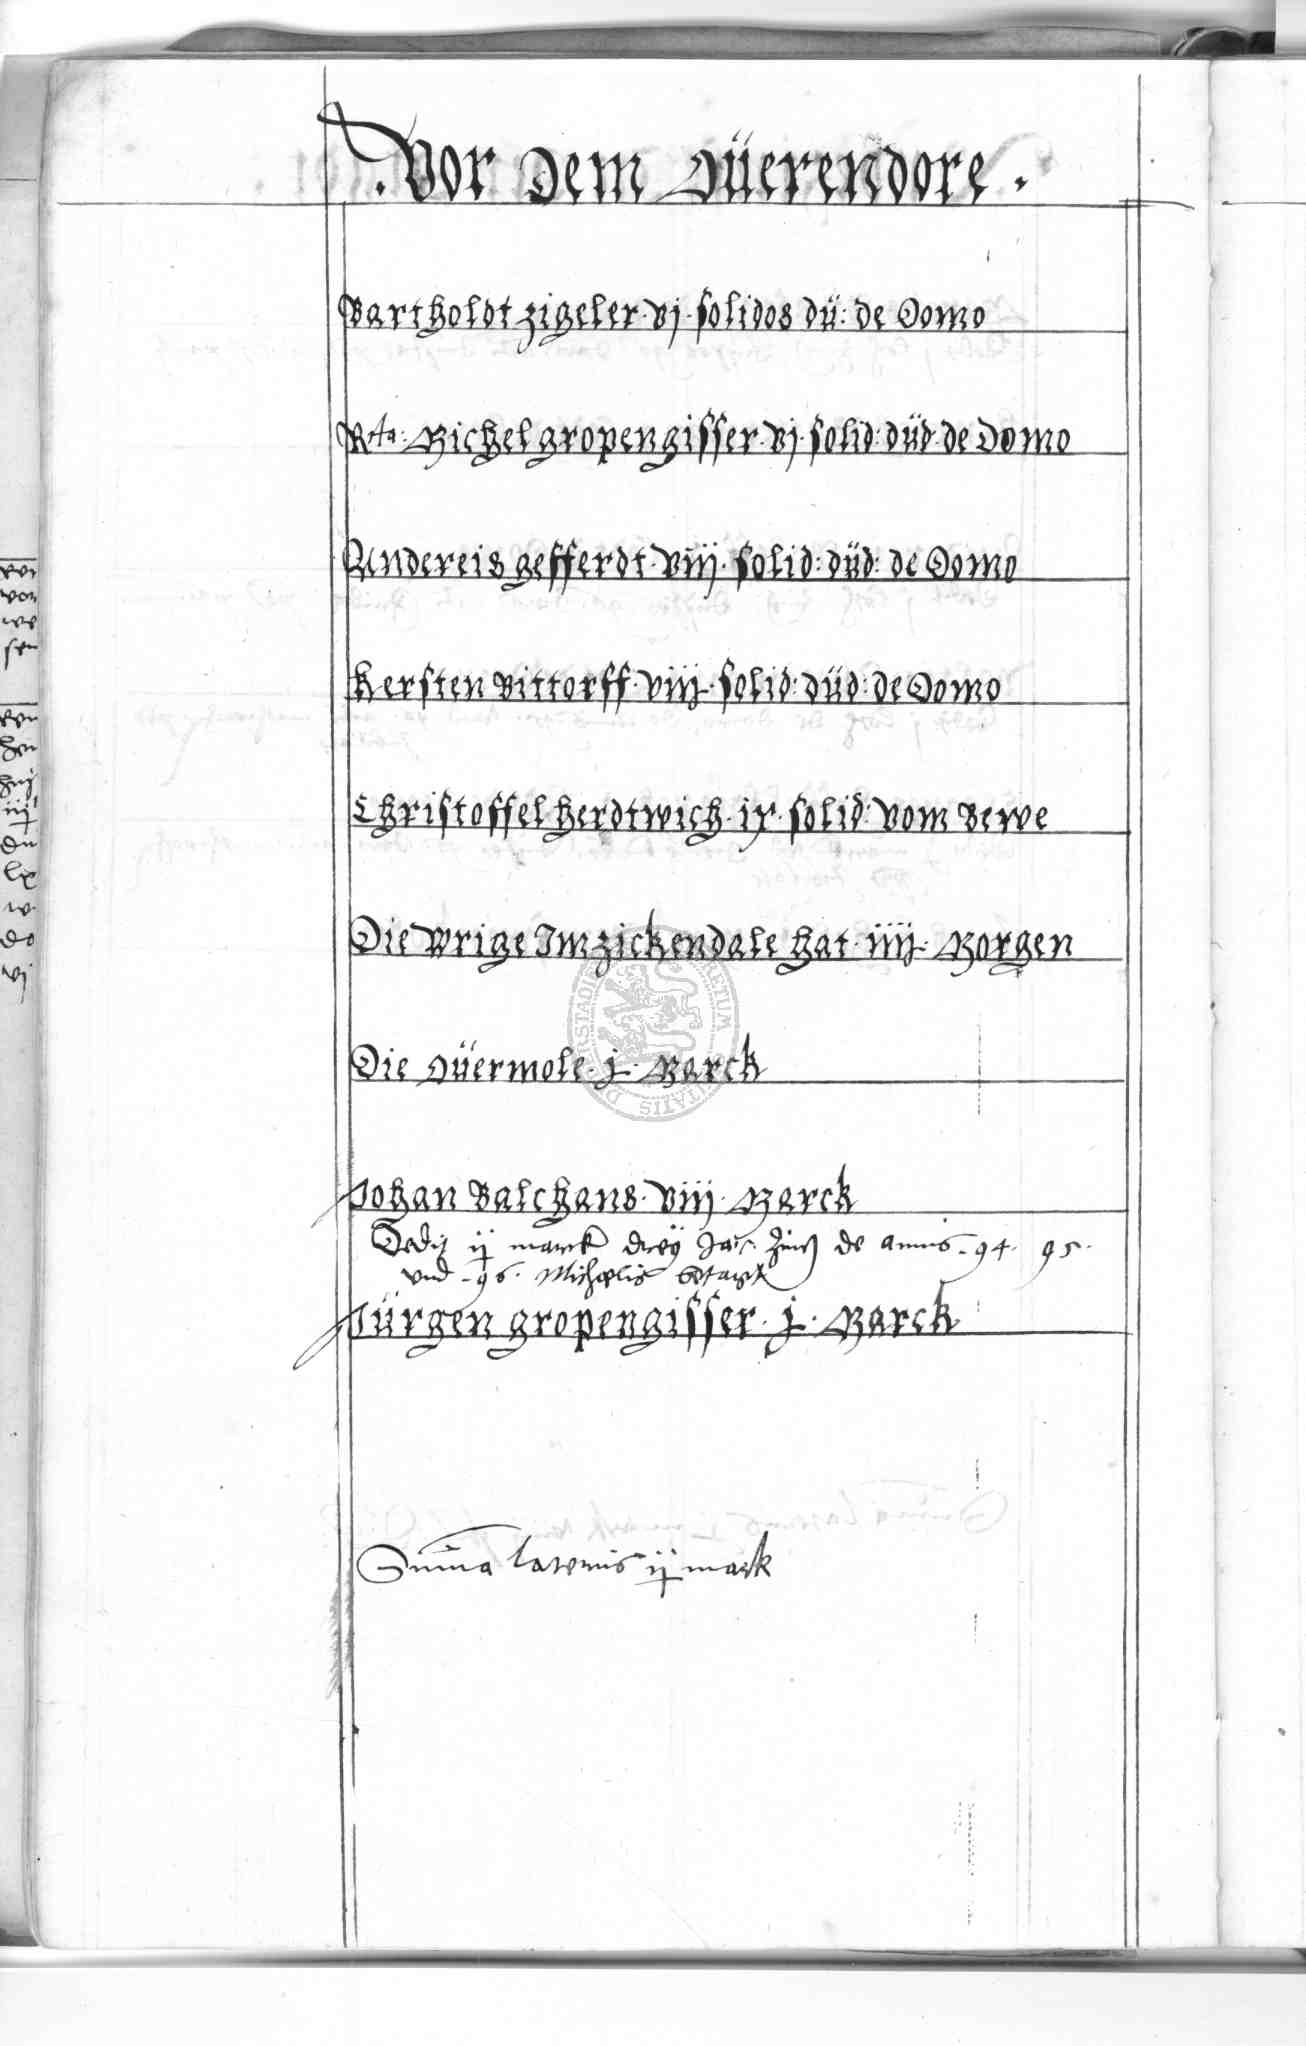 . Vor dem Düerendore .
Bartholdt zigeler · vj · solidos dü: de Domo
Rta: Michel gropengisser · vj · solid: düd: de Domo
Andereis gefferdt · viij · solid: düd: de Domo
Kersten Vittorff · viij · solid: düd: de Domo
Christoffel herdtwich · ix · solid: vom Berve
Die Wrige Im zickendale hat · iiij · Morgen
Die Düermole · j · Marck
Johan Balchans · viij · Marck
Dedit ij marck drey Jar Zins de annis · 94 · 95 ·
vnd · 96 · Michaelis betagt
Jürgen gropengisser · j · Marck
Summa lateris ij marck
von
we
sen
hen
iiij
du
lx
w
do
vj